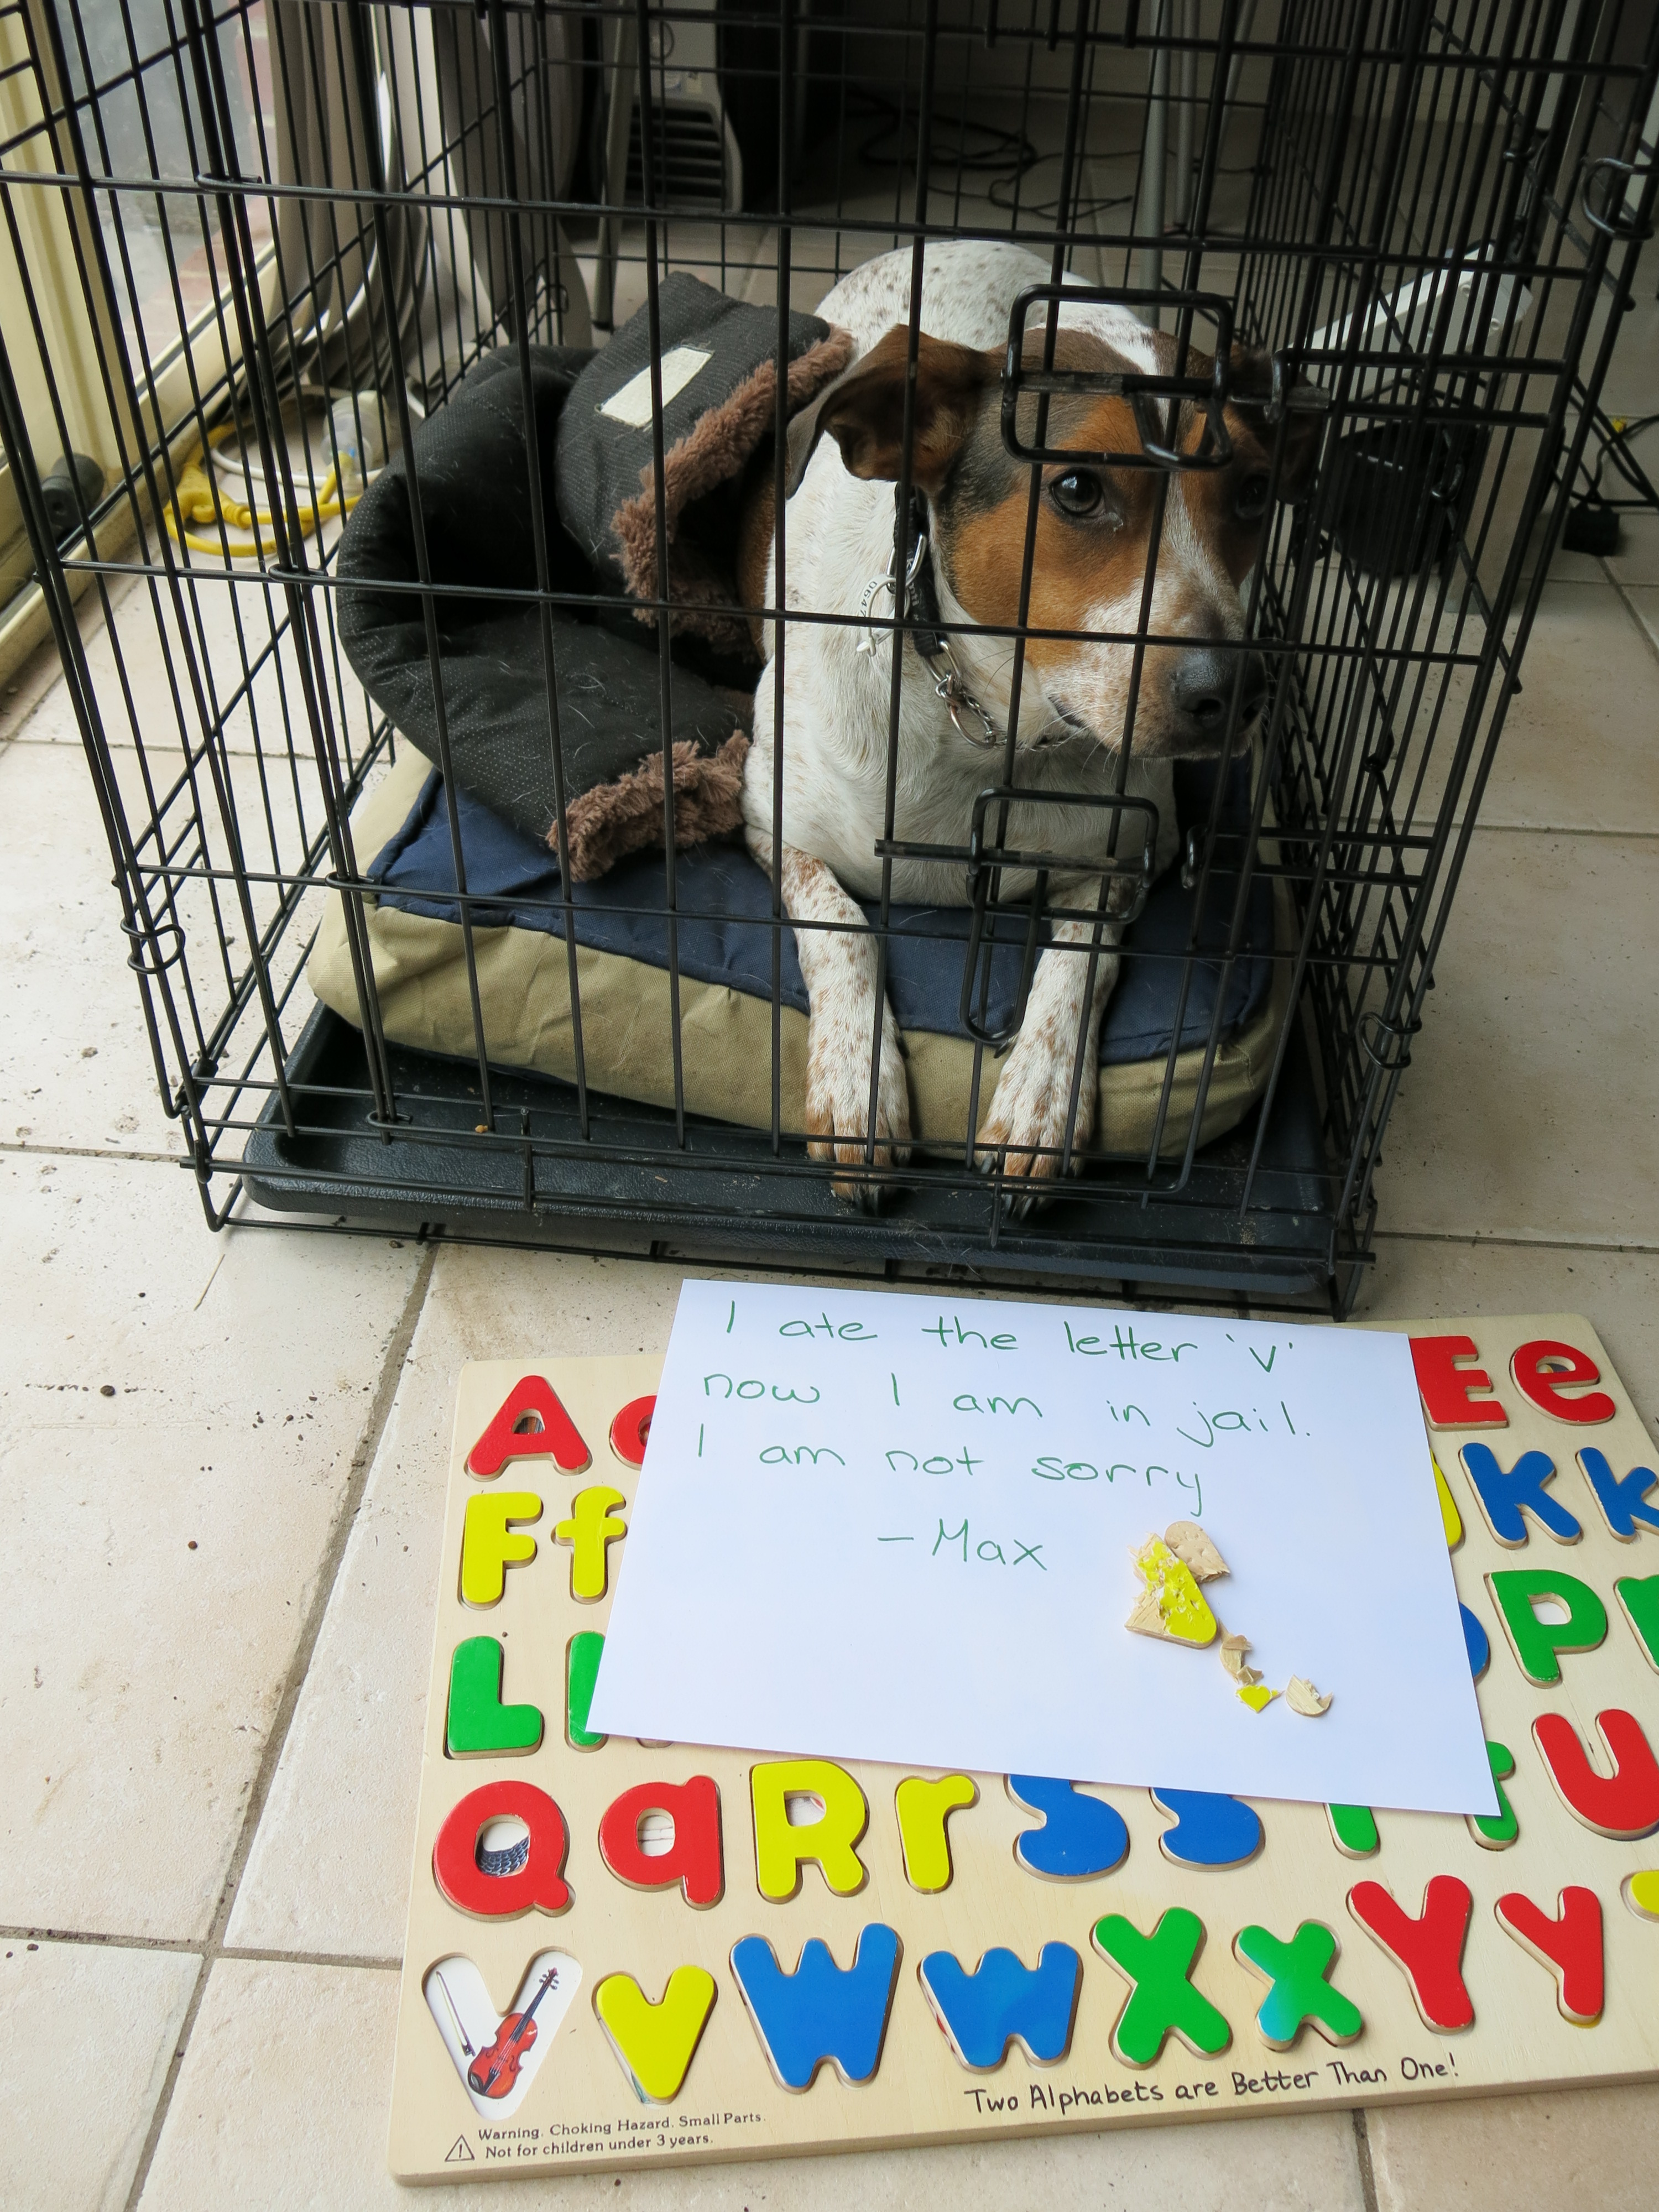 I ate the letter 'V'
now I am in jail.
I am not sorry
-Max
A
E e
F f
K k
L
P
Q q R r S s t U
v W w X x Y y
Two Alphabets are Better Than One!
Warning. Choking Hazard. Small Parts.
Not for children under 3 years.